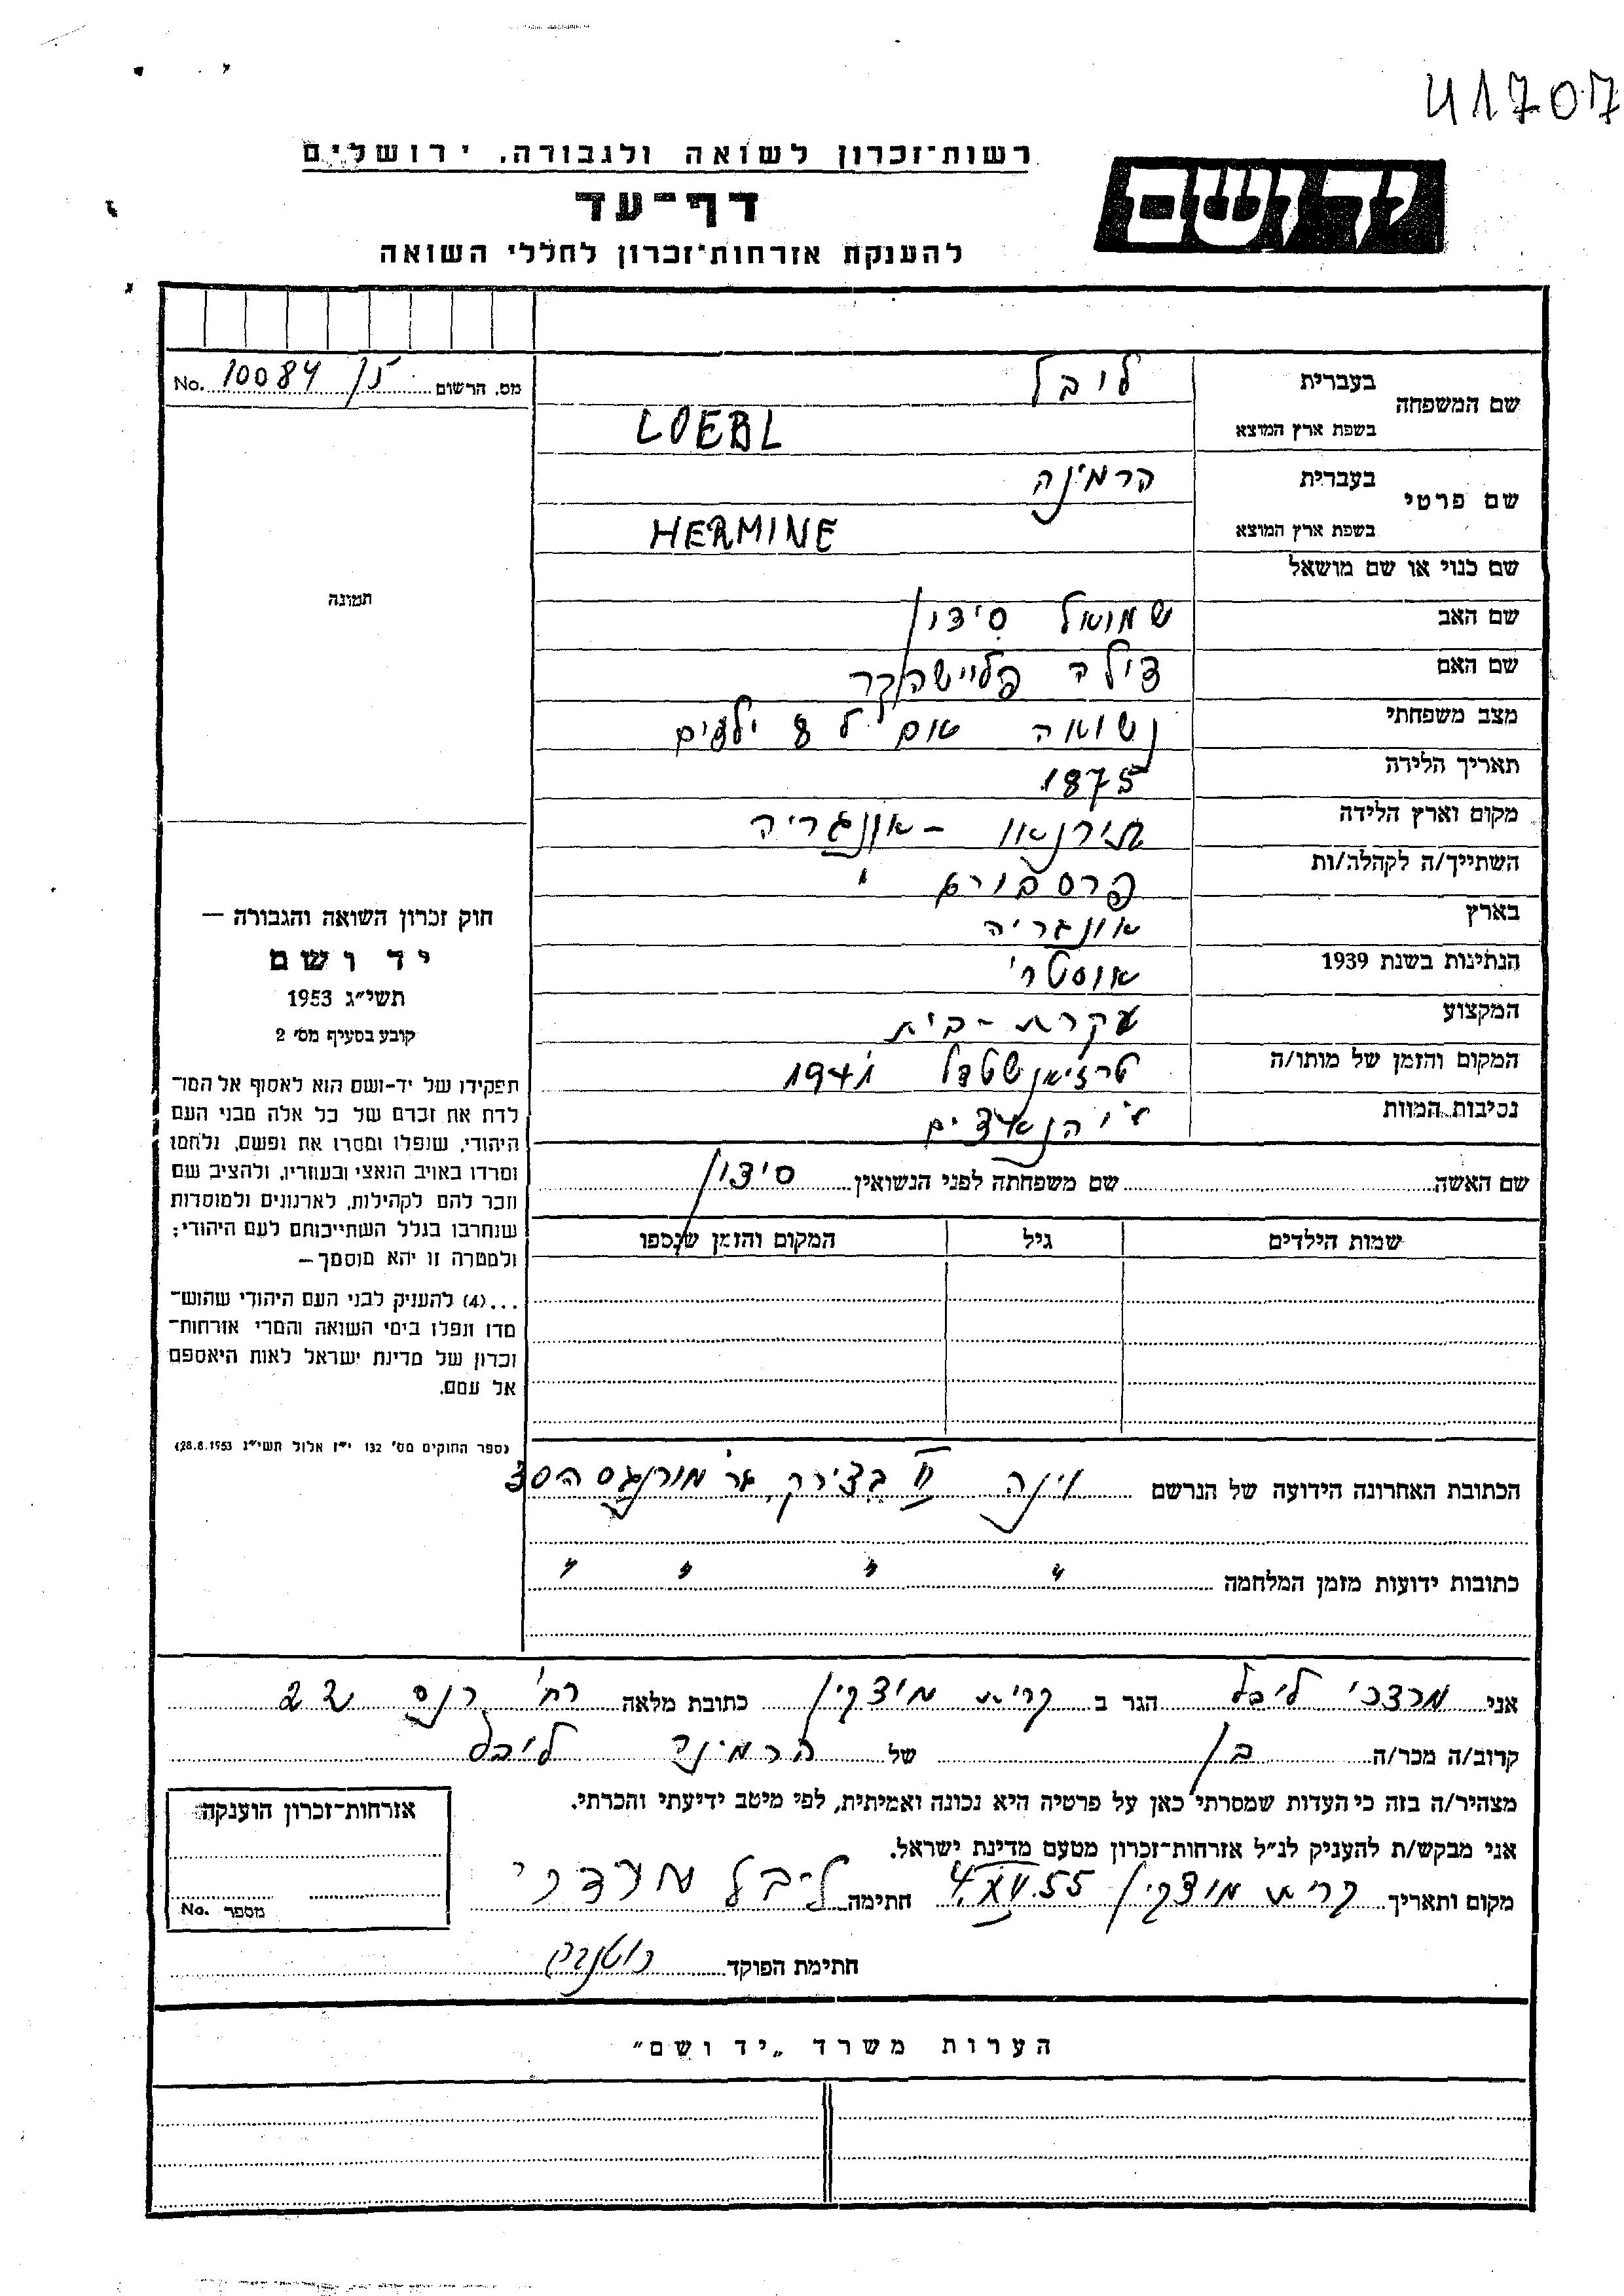 41707
רשות־זכרון לשואה ולגבורה, ירושלים
יד ושם
דף־עד
להענקת אזרחות־זכרון לחללי השואה
מס. הרשום 10084 No.
שם המשפחה
בעברית ליבל
בשפת ארץ המוצא LOEBL
שם פרטי
בעברית הרמינה
בשפת ארץ המוצא HERMINE
שם כנוי או שם מושאל
שם האב שמואל סידון
שם האם צילה
מצב משפחתי נשואה אם ל 8 ילדים
תאריך הלידה 1875
מקום וארץ הלידה טירנאו - אונגריה
השתייך/ה לקהלה/ות פרסבורג
בארץ אונגריה
הנתינות בשנת 1939 אוסטרי
המקצוע עקרת - בית
המקום והזמן של מותו/ה טרזיאנשטדל 1941
נסיבות המוות ע"י הנאצים
שם האשה שם משפחתה לפני הנשואין סידון
שמות הילדים גיל המקום והזמן שנספו
תמונה
חוק זכרון השואה והגבורה —
יד ושם
תשי״ג 1953
קובע בסעיף מס׳ 2
תפקידו של יד-ושם הוא לאסוף אל המו־
לדת את זכרם של כל אלה מבני העם
היהודי, שנפלו ומסרו את נפשם, נלחמו
ומרדו באויב הנאצי ובעוזריו, ולהציב שם
וזכר להם לקהילות, לארגונים ולמוסדות
שנחרבו בגלל השתייכותם לעם היהודי;
ולמטרה זו יהא מוסמך—
...(4) להעניק לבני העם היהודי שהוש־
מדו ונפלו בימי השואה והמרי אזרחות־
זכרון של מדינת ישראל לאות היאספם
אל עמם.
(ספר החוקים מס׳ 132 י״ז אלול תשי״ג 28.8.1953)
הכתובת האחרונה הידועה של הנרשם וינה II בצירק
כתובות ידועות מזמן המלחמה " " " "
אני מרדכי ליבל הגר ב קרית מוצקין כתובת מלאה רח' 22
קרוב/ה מכר/ה בן של הרמינה ליבל
מצהיר/ה בזה כי העדות שמסרתי כאן על פרטיה היא נכונה ואמיתית, לפי מיטב ידיעתי והכרתי.
אני מבקש/ת להעניק לנ״ל אזרחות־זכרון מטעם מדינת ישראל.
מקום ותאריך קרית מוצקין חתימה ליבל מרדכי
חתימת הפוקד
אזרחות־זכרון הוענקה
מספר No.
הערות משרד „יד ושם״